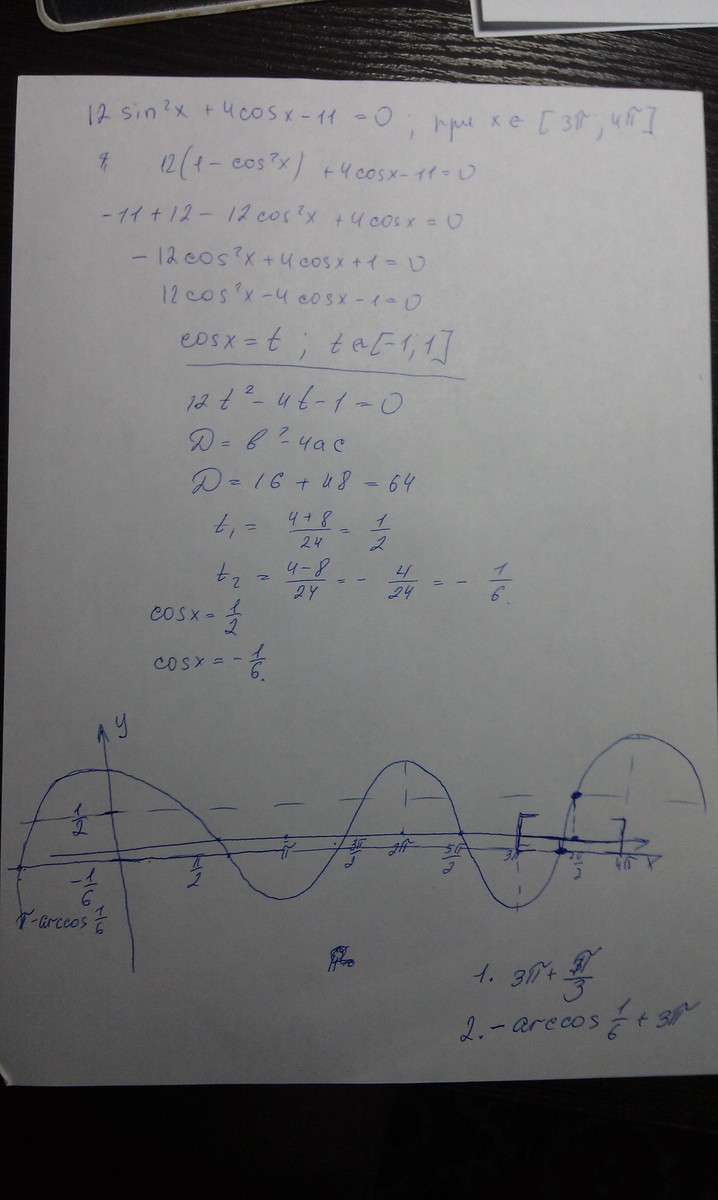 12 sin²x + 4cosx - 11 = 0 ; при x ∈ [3π ; 4π]
12(1 - cos²x) + 4cosx - 11 = 0
-11 + 12 - 12cos²x + 4cosx = 0
- 12cos²x + 4cosx + 1 = 0
12cos²x - 4cosx - 1 = 0
cosx = t ; t ∈ [-1; 1]
12t² - 4t - 1 = 0
D = b² - 4ac
D = 16 + 48 = 64
t₁ = (4+8)/24 = 1/2
t₂ = (4-8)/24 = - 4/24 = - 1/6.
cosx = 1/2
cosx = - 1/6.
y
1/2
π/2 π 3π/2 2π 5π/2 3π 7π/2 4π x
-1/6
π-arccos 1/6
1. 3π + π/3
2. - arccos 1/6 + 3π